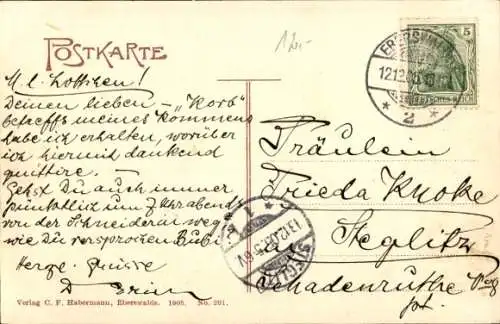 POSTKARTE
M. l. Lottchen!
Deinen lieben – „Korb"
betreffs meines Kommens
habe ich erhalten, worüber
ich hiermit dankend
quittire. —
Gehst Du auch immer
pünktlich um 7 Uhr abends
von der Schneiderei weg
wie Du versprochen Bubi?
Herzl. Grüsse
D.
5
DEUTSCHES REICH
12.12.05
* 2 *
Fräulein
Frieda Knoke
Steglitz
Schadenruthe
STEGLITZ
13.12.05
Verlag C. F. Habermann, Eberswalde. 1905. No. 201.